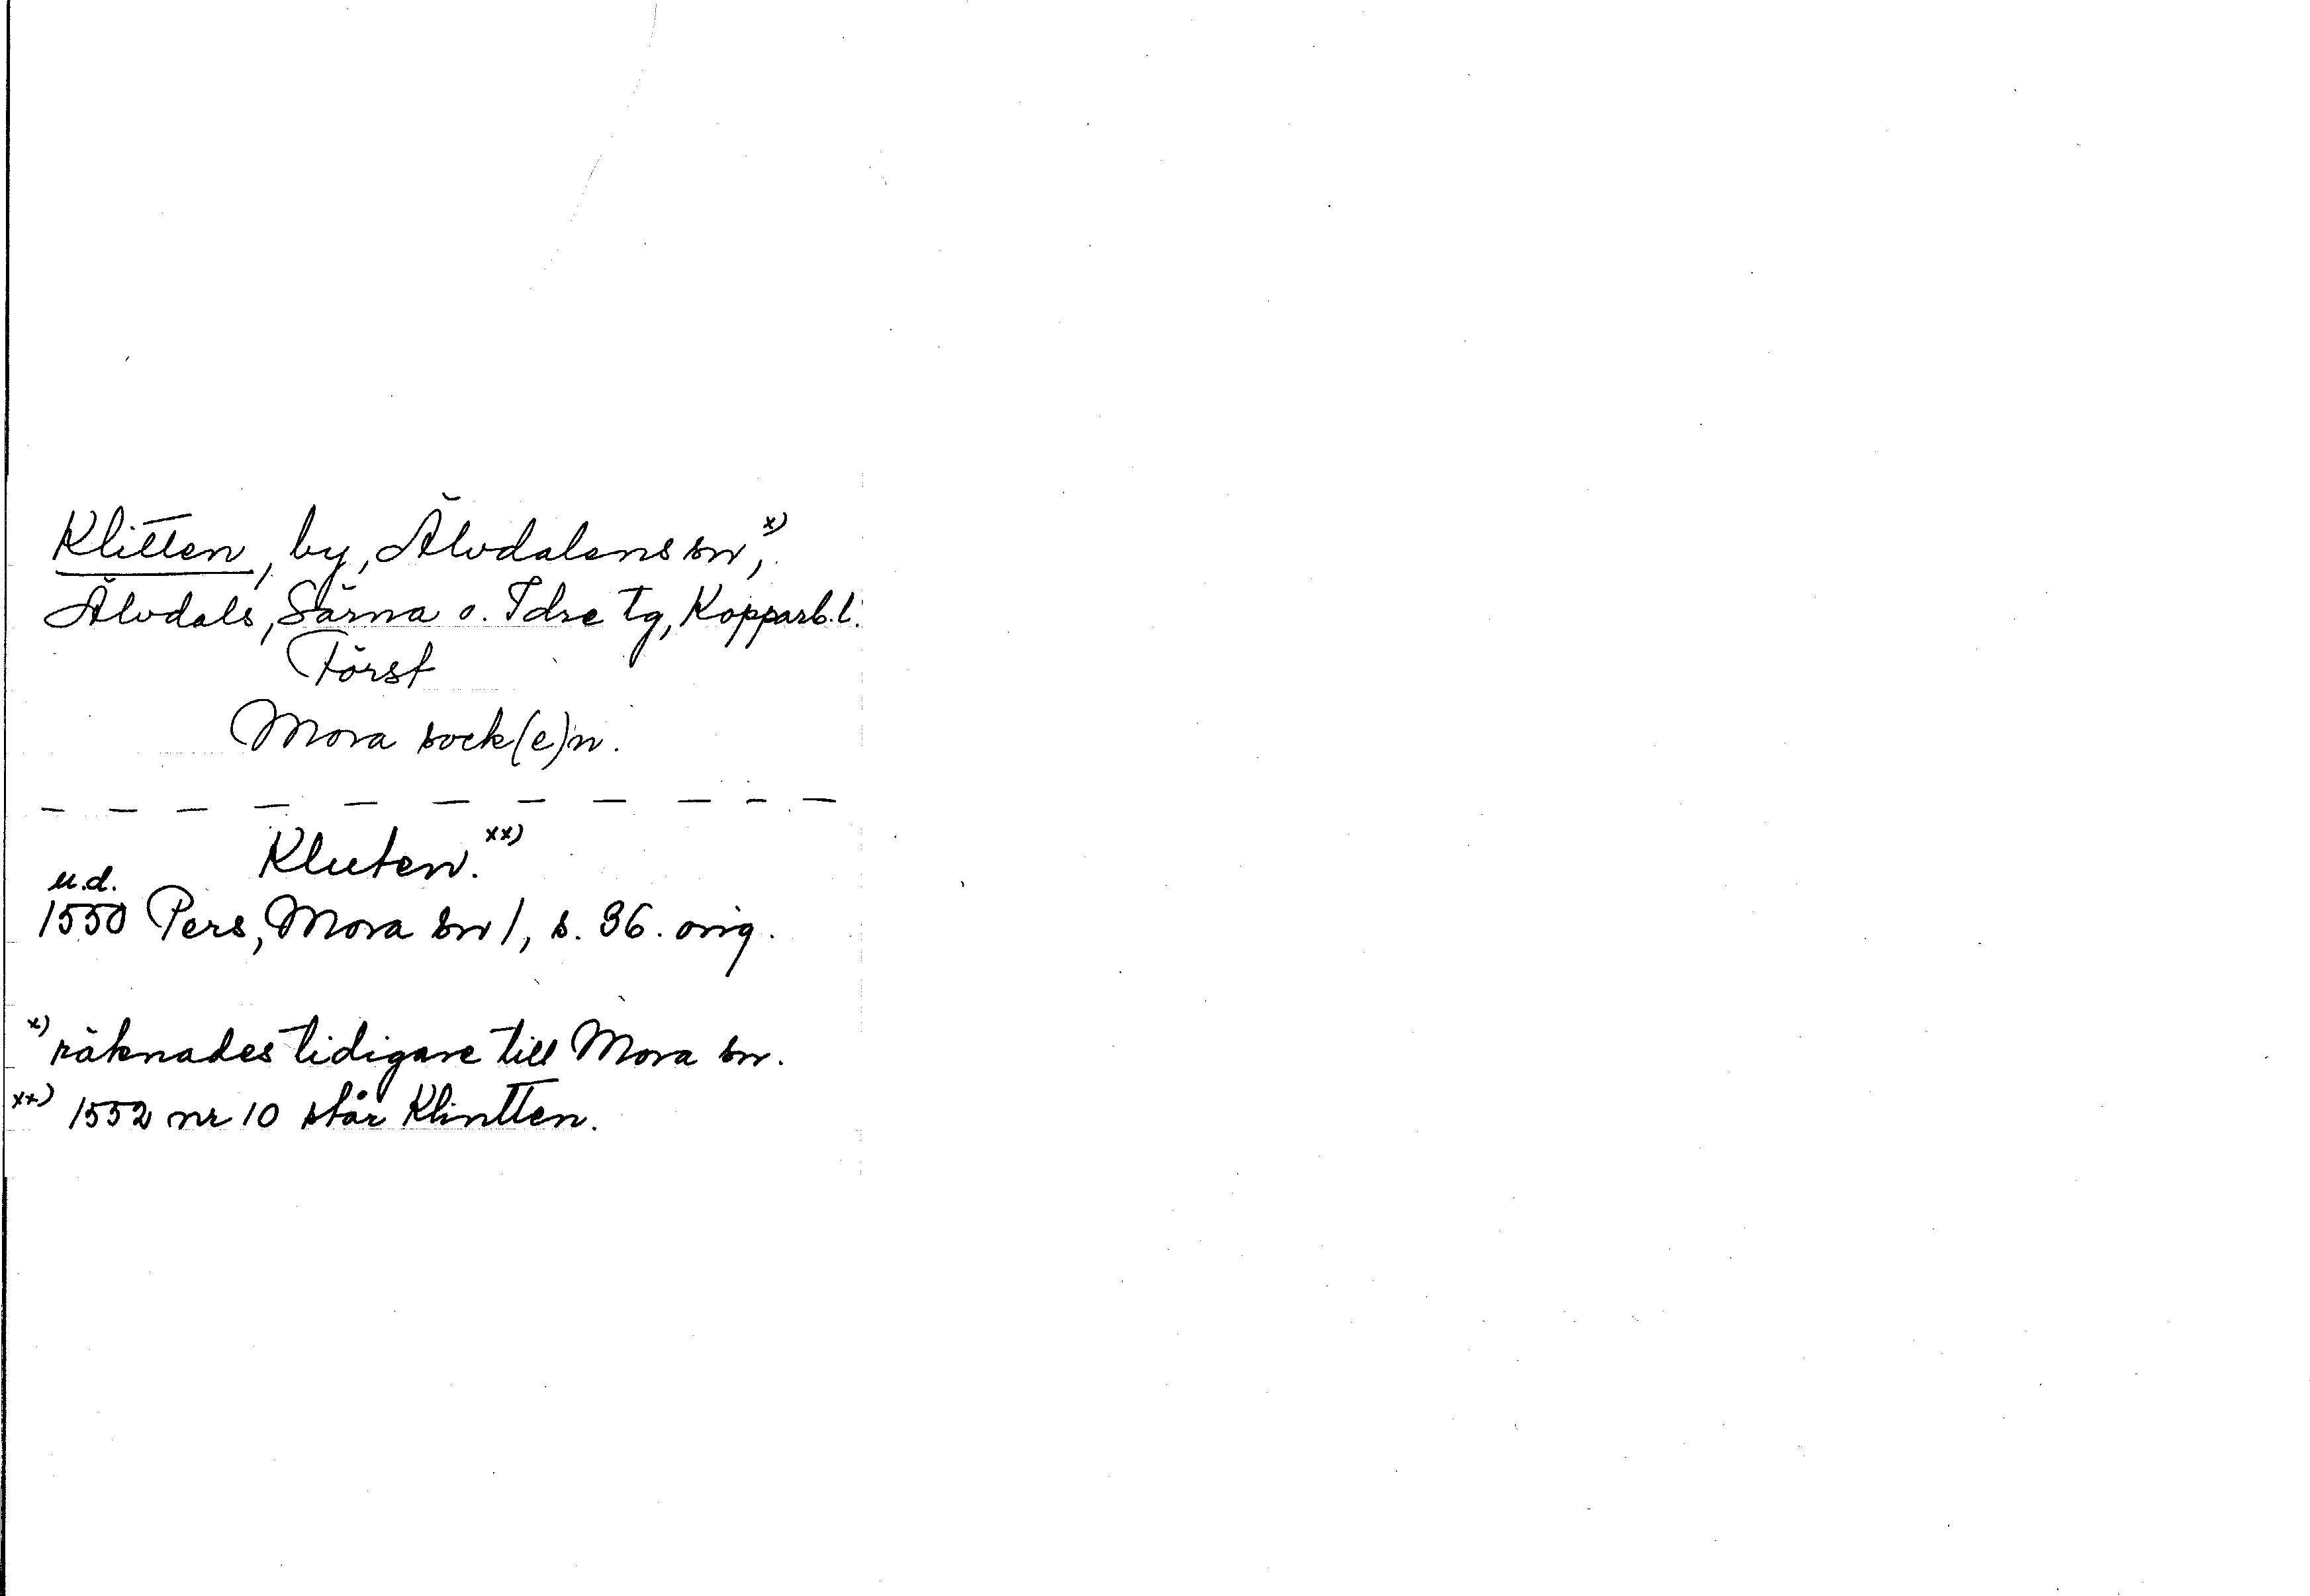 Klitten, by, Älvdalens sn,ˣ⁾
Älvdals, Särna o. Idre tg, Kopparb. l.
Först
Mora sock(e)n.
— — — — — — — — — — —
Kluten.ˣˣ⁾
u.d.
1550 Pers, Mora sn 1, s. 36. orig.
ˣ⁾ räknades tidigare till Mora sn.
ˣˣ⁾ 1552 nr 10 står Klintten.